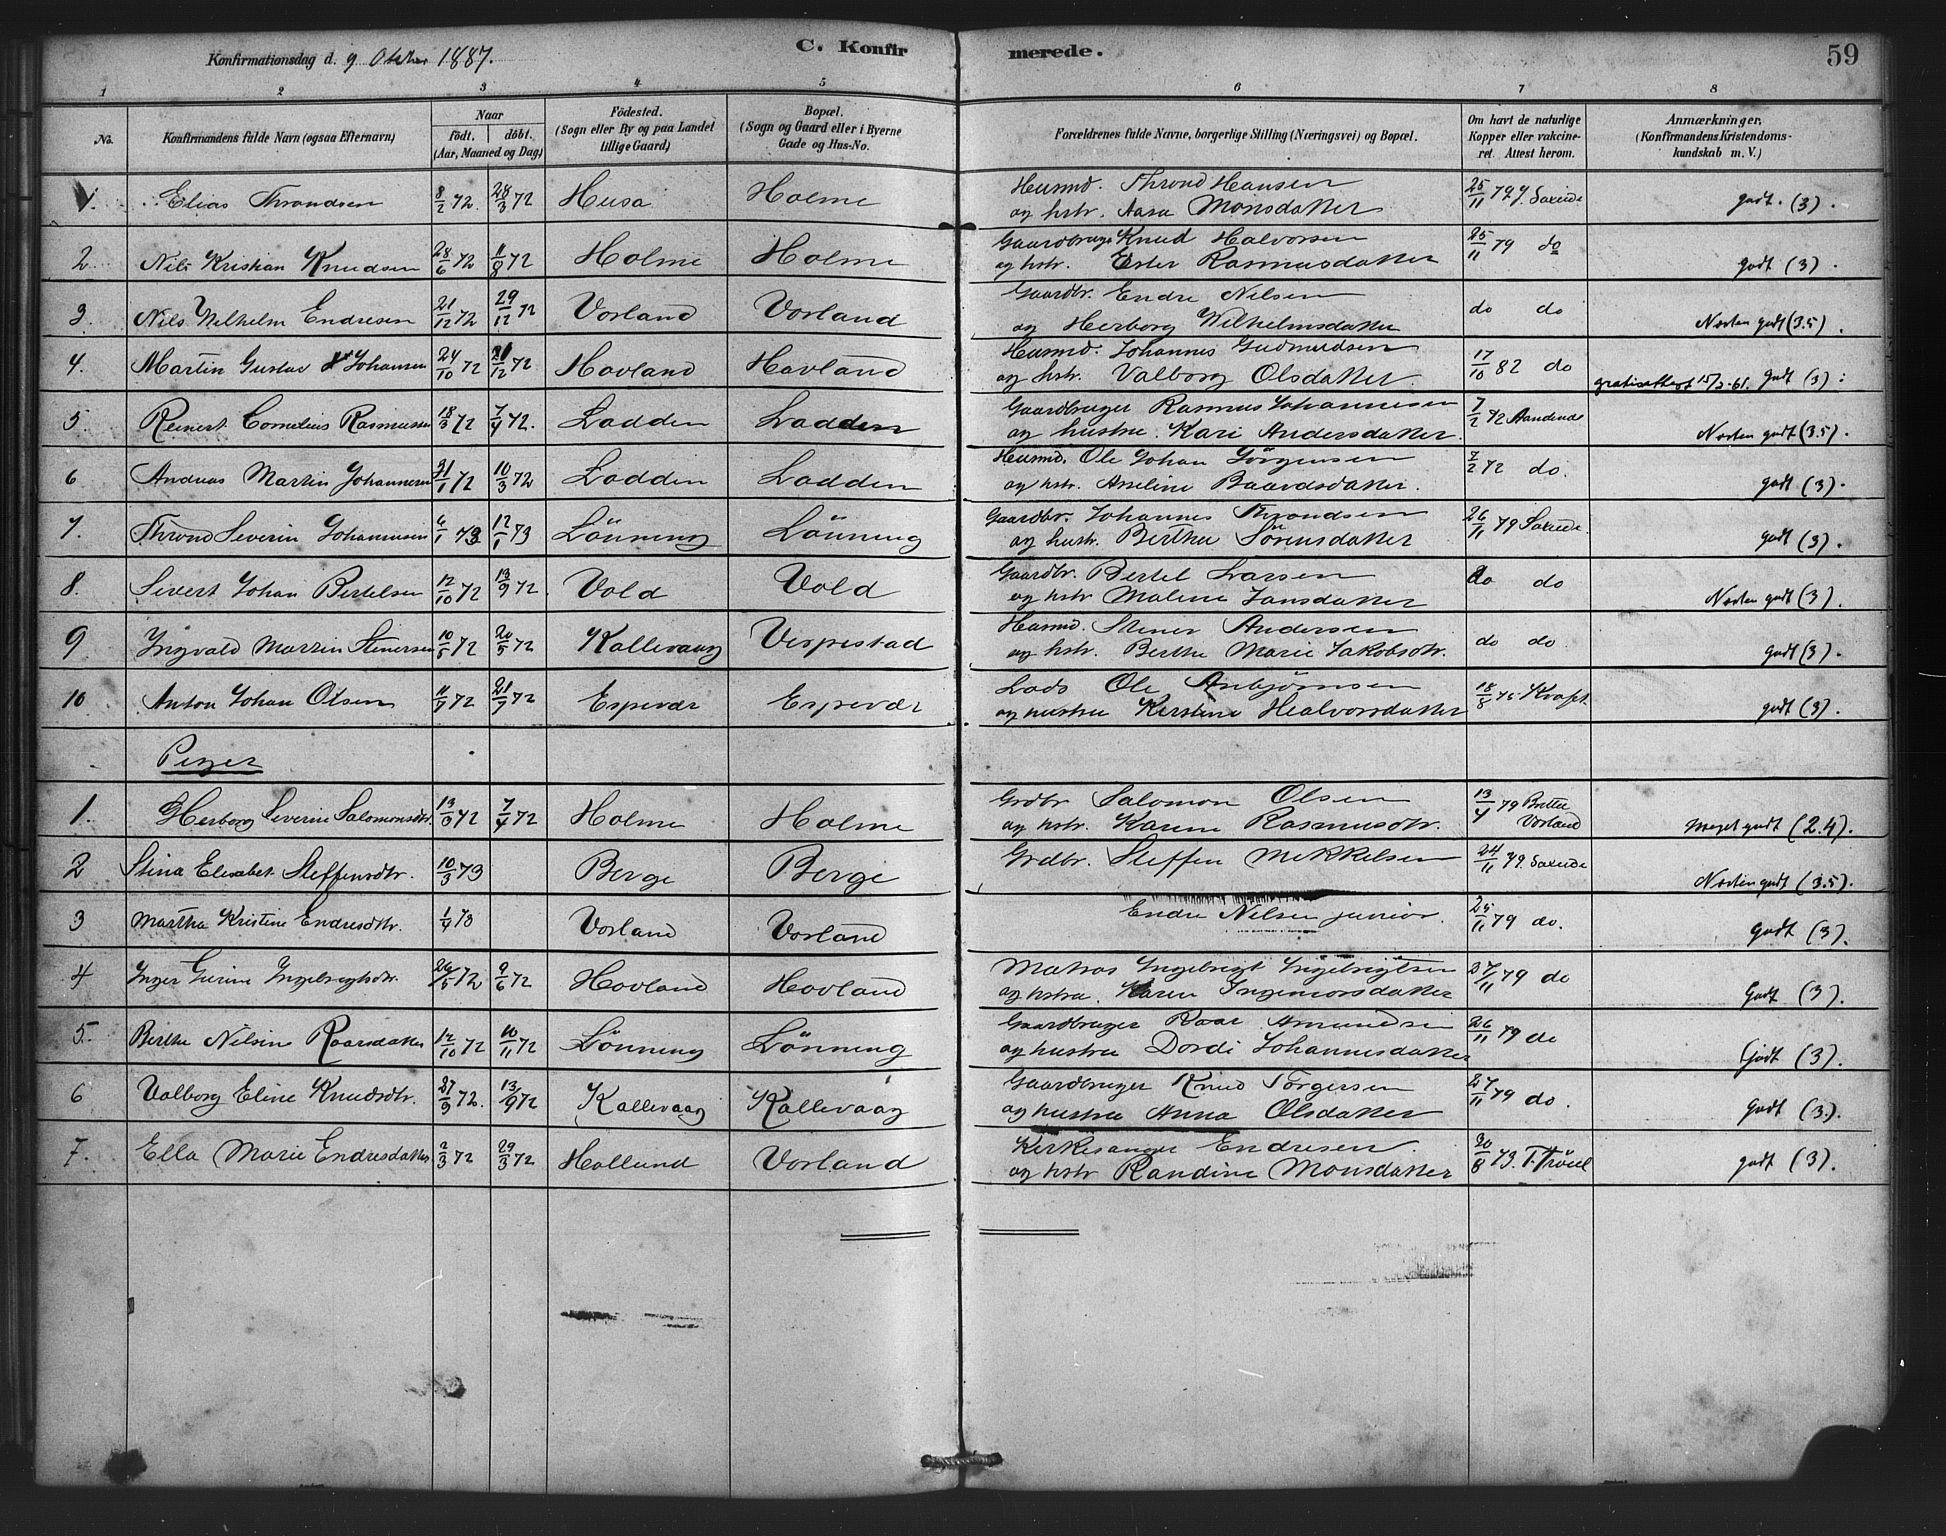 Konfirmationsdag d. 9 Oktber 1887.
C. Konfirmerede.
59
1 2 3 4 5 6 7 8
No.
Konfirmandens fulde Navn (ogsaa Efternavn)
Naar
födt. döbt.
(Aar, Maaned og Dag)
Födested.
(Sogn eller By og paa Landet
tillige Gaard)
Bopæl.
(Sogn og Gaard eller i Byerne
Gade og Hus-No.
Forældrenes fulde Navne, borgerlige Stilling (Næringsvei) og Bopæl.
Om havt de naturlige
Kopper eller vakcine-
ret. Attest herom.
Anmærkninger.
(Konfirmandens Kristendoms-
kundskab m. V.)
1. Elias Throndsen 8/2 72. 28/3 72 Husa Holme Husmd. Thrond Hansen 25/11 79 Saxeide godt. (3).
og hstr. Aasa Monsdatter
2 Nils Kristian Knudsen 28/6 72 11/8 72 Holme Holme Gaardbruger Knud Halvorsen 25/11 79 do godt (3).
og hstr. Ester Rasmusdatter
3. Nils Wilhelm Endresen 21/12 72 29/12 72 Vorland Vorland Gaardbr. Endre Nilsen do do Næsten godt (3.5).
og Herborg Wilhelmsdatter
4. Martin Gustav Johansen 24/10 72 21/12 72 Hovland Havland Husmd. Johannes Gudmundsen 17/10 82 do gratisattest 15/3-61. godt (3):
og hstr. Valborg Olsdatter.
5. Reinert Cornelius Rasmussen 18/3 72 7/4 72. Lodden Lodden Gaardbruger Rasmus Johannesen 7/2 72 Aandende Næsten godt (3.5).
og hustru. Kari Andersdatter.
6 Andreas Martin Johannesen 31/1 72 10/3 72 Lodden Lodden Husmd. Ole Johan Jörgensen 7/2 72 do. godt (3).
og hstr. Anseline Baardsdatter.
7. Thrond Severin Johannesen 6/1 73 12/1 73 Lönning Lönning Gaardbr. Johannes Throndsen 26/11 79 Saxeide. godt (3).
og hustr. Berthe Sörensdatter
8. Sivert Johan Bertelsen 12/10 72 13/9 72 Vold Vold Gaardbr. Bertel Larsen do do Næsten godt (3).
og hstr Malene Jansdatter
9 Ingvald Martin Stenersen 10/5 72 20/5 72 Kallevaag Vespestad Husmd. Stener Andersen do do. godt (3).
og hstr. Berthe Marie Jakobsdtr.
10. Anton Johan Olsen 11/7 72 21/7 72 Espevær Espevær Lods Ole Anbjörnsen 18/8 75 Kraft. godt (3).
og hustru Kirstine Healvorsdatter
Piger
1. Herborg Severine Salomonsdtr. 13/3 72 7/4 72 Holme Holme Grdbr Salomon Olsen 13/4 79 Britte Vorland Meget godt (2.4).
og hstr. Karen Rasmusdtr.
2 Stina Elisabet Steffensdtr. 10/3 73 Berge Berge Grdbr. Steffen Mekkelsen 24/11 79. Saxeide Næsten godt (3.5).
3 Martha Kristine Endresdtr. 1/4 73 Vorland Vorland Endre Nilsen junior. 25/11 79 do. Godt (3).
4 Inger Ingebrigtsdtr. 26/5 72 9/6 72 Hovland Hovland Matros Ingebrigt Ingebrigtsen 27/11 79 do Godt (3).
og hstru. Karen Ingemorsdatter
5. Berthe Nilsine Roarsdatter 12/10 72 10/11 72 Lönning Lönning Gaardbruger Roar Amundsen 26/11 79 do Godt (3).
og hustru Dordi Johannesdatter
6 Valborg Eline Knudsdtr. 27/3 72. 13/9 72 Kallevaag Kallevaag Gaardbruger Knud Torgersen 27/11 79 do. Godt (3.).
og hustru Anna Olsdatter
7. Ella Marie Endresdatter 2/3 72 29/3 72 Hollund Vorland Kirkesanger Endresen. 30/8 73. T. Tröel godt (3).
og hstr Randine Monsdatter